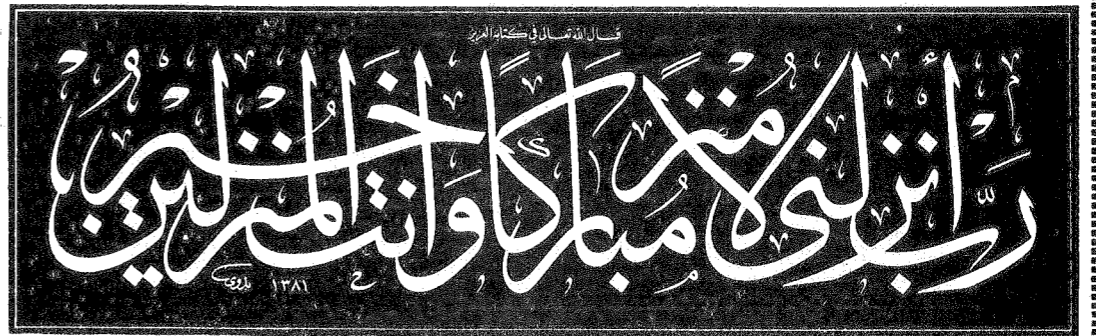 قال الله تعالى في كتابه العزيز
رب انزلني منزلا مباركا وانت خير المنزلين
بدوي ١٣٨١